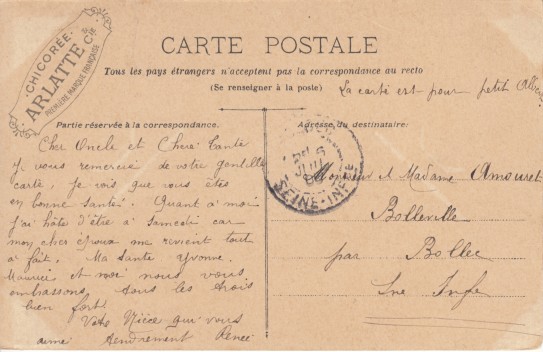 CHICORÉE
ARLATTE & Cie
PREMIÈRE MARQUE FRANÇAISE
CARTE POSTALE
Tous les pays étrangers n'acceptent pas la correspondance au recto
(Se renseigner à la poste)
La carte est pour petit
Partie réservée à la correspondance.
Adresse du destinataire:
Cher Oncle et Chère Tante
Je vous remercie de votre gentille
carte, je vois que vous êtes
en bonne santé. Quant à moi
j'ai hâte d'être à samedi car
mon cher époux me revient tout
à fait. Ma Yvonne.
Maurice et moi nous vous
embrassons tous les trois
bien fort!
Votre Nièce qui vous
aime tendrement Renée
SEINE-INFRE
Monsieur et Madame Amouret
Bolleville
par Bolbec
Sne Infre